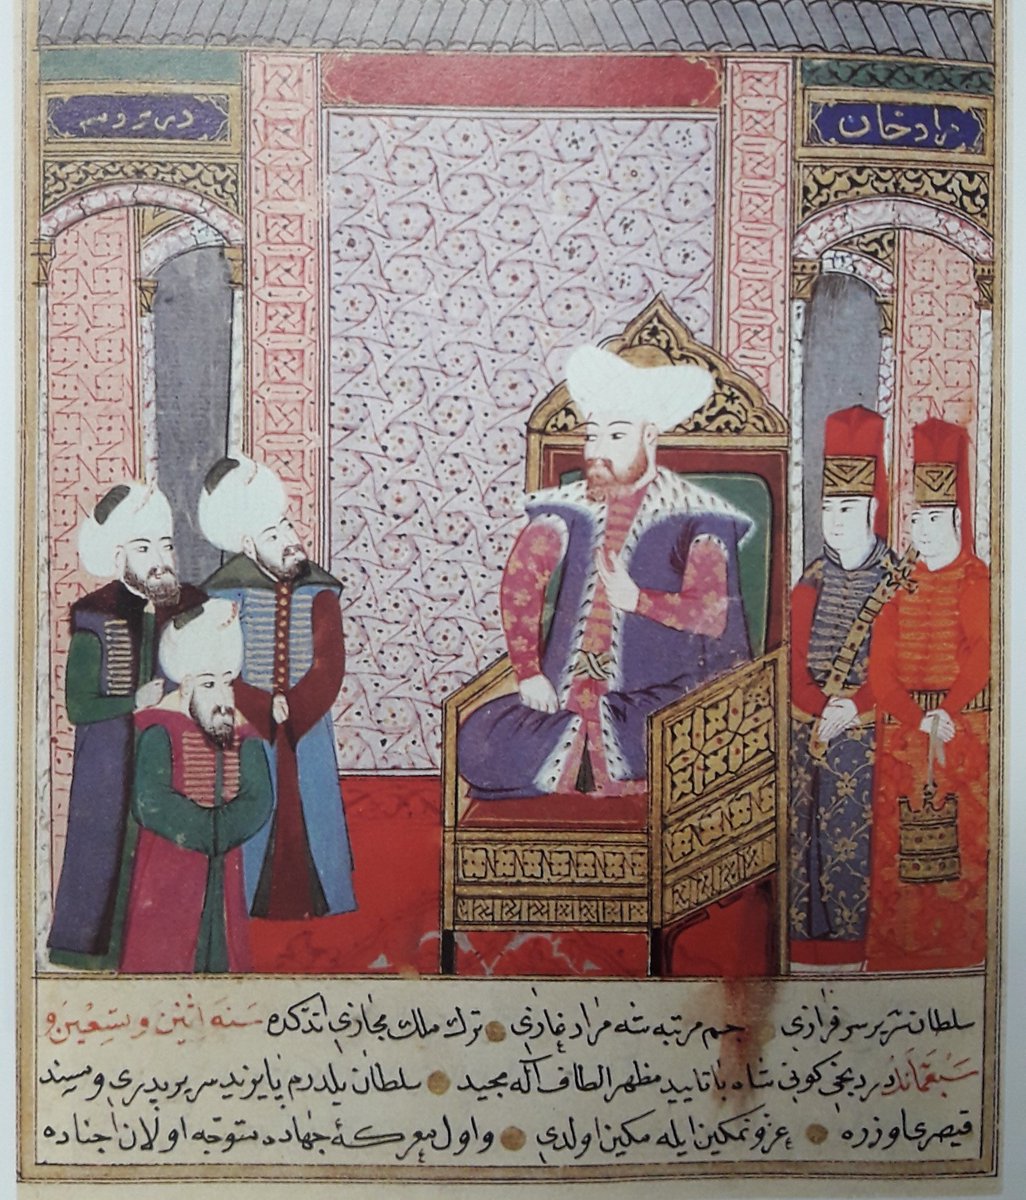 مراد خان
سلطان سریر سرفرازی جم مرتبه شه مراد غازی ترك ملك مجازی اتدکده سنه اثنین و تسعین و
سبعمائه دردنجی کونی شاه باتایید مظهر الطاف اله مجید سلطان یلدرم بایزید سریر پدری و مسند
قیصری اوزره عز و تمکین ایله مکین اولدی و اول معرکۀ جهاده متوجه اولان اجناده